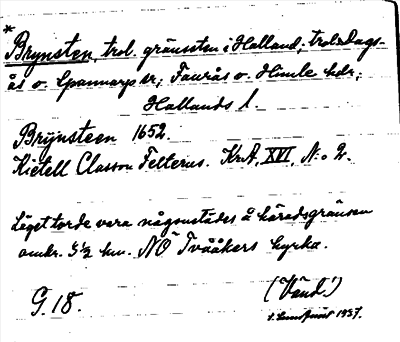 *
Brynsten, trol. gränssten i Halland; trol. Dags-
ås o. Spannarps snr; Faurås o. Himle hdr;
Hallands l.
Brÿnsteen 1652.
Kietell Classon Felterus. KrA, XVI, N:o 2.
Läget torde vara någonstädes å häradsgränsen
omkr. 5½ km. NÖ Tvååkers kyrka.
G. 18.
(Vänd!)
1937.